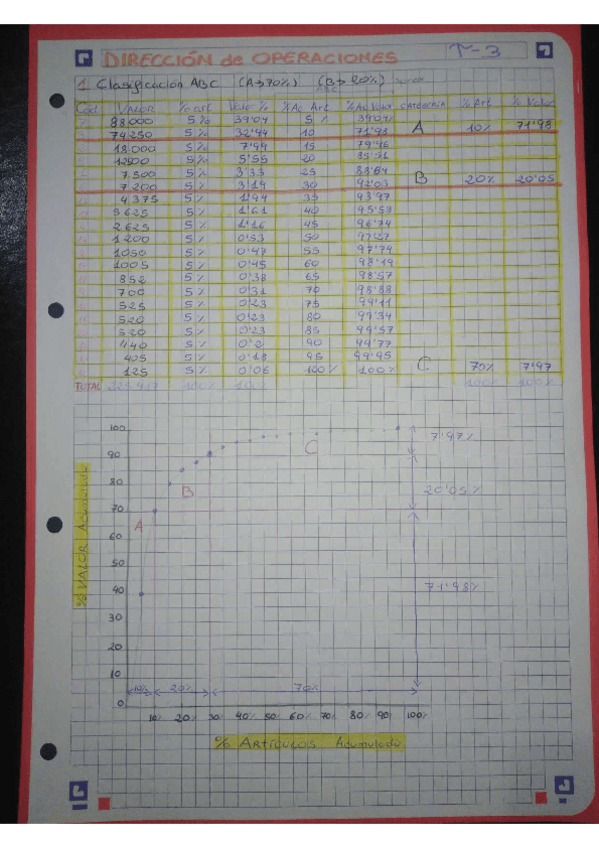 DIRECCIÓN de OPERACIONES T-3
1 Clasificación ABC (A→70%) (B→20%)
Cod VALOR % art Valor % % Ac Art % Ac Valor ABC % Art % Valor
88.000 5% 39'04 5% 39'04
74.250 5% 32'94 10 71'98 A 10% 71'98
18.000 5% 7'99 15 79'96
12500 5% 5'55 20
7.500 5% 3'33 25 88'84
7.200 5% 3'19 30 92'03 B 20% 20'05
4.375 5% 1'94 35 93'97
3625 5% 1'61 40
2.625 5% 1'16 45 96'74
1.200 5% 0'53 50 97'27
1050 5% 0'47 55 97'74
1005 5% 0'45 60 98'19
852 5% 0'38 65 98'57
700 5% 0'31 70 98'88
525 5% 0'23 75 99'11
520 5% 0'23 80 99'34
520 5% 0'23 85 99'57
440 5% 0'2 90 99'77
405 5% 0'18 95 99'95
125 5% 0'06 100% 100% C 70% 7'97
TOTAL 100% 100% 100% 100%
100 7'97%
90 C
80 B 20'05%
70 A
60
50
40 71'98%
30
20
10 10% 20% 70%
0
10% 20% 30 40% 50% 60% 70% 80% 90% 100%
% VALOR Acumulado
% ARTÍCULOS Acumulado